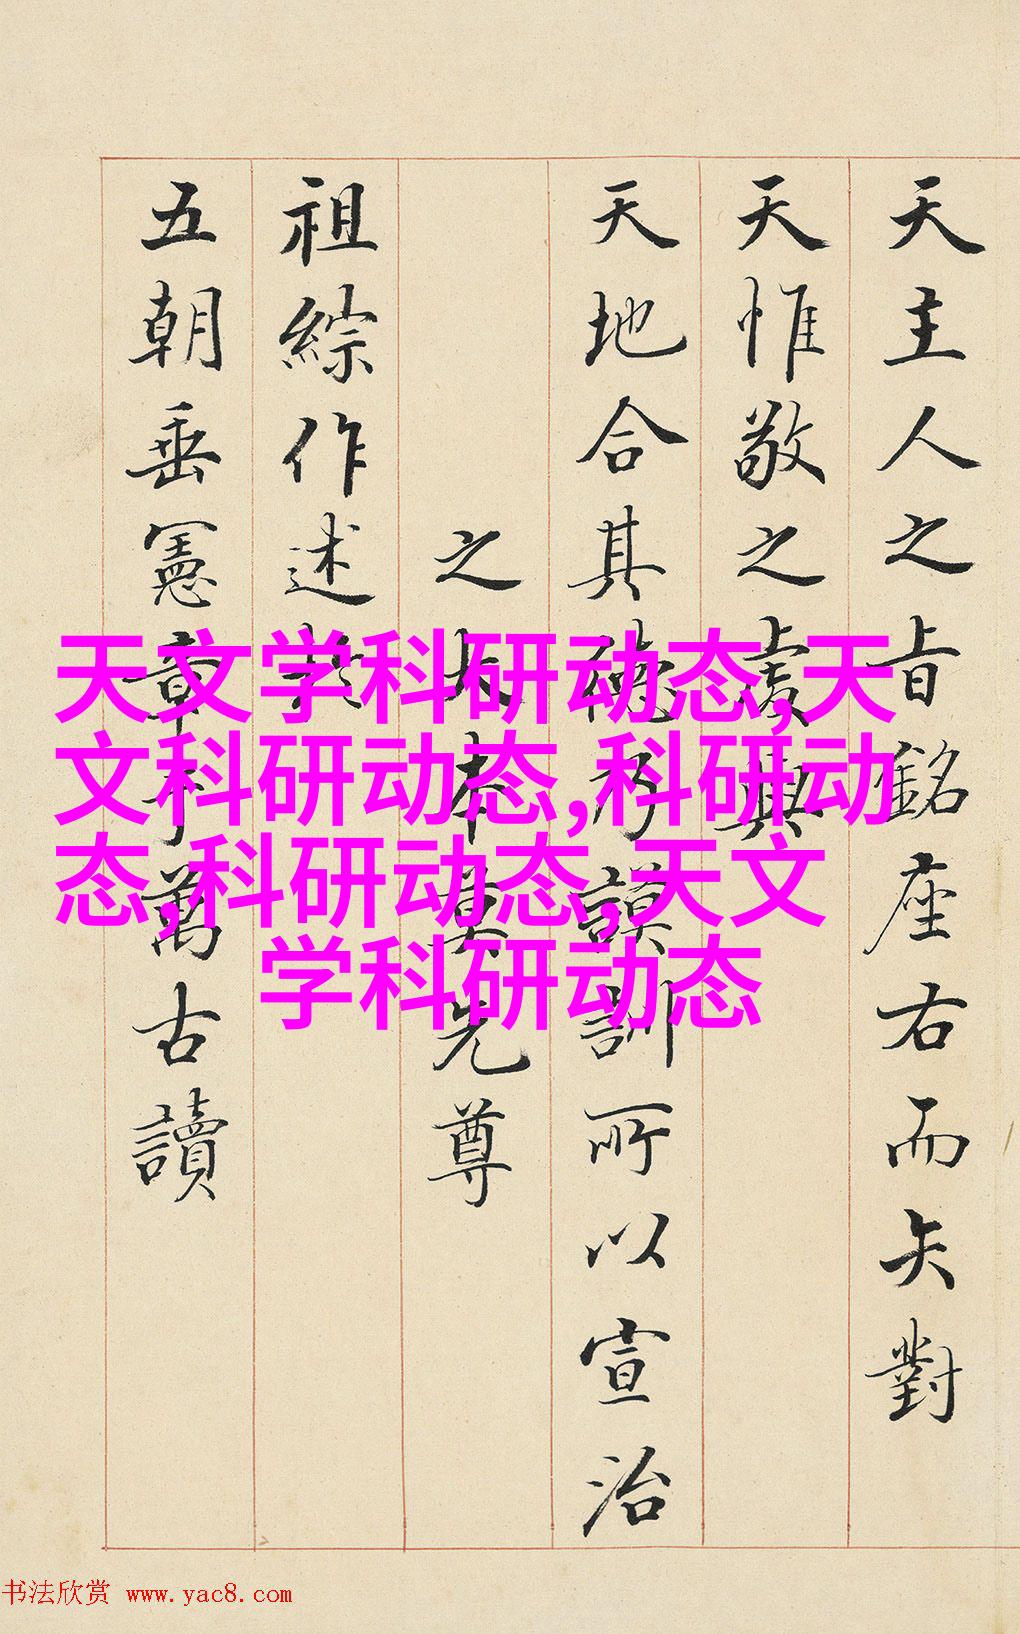 天主人之旨銘座右而矢對
天惟敬之虔與
天地合其德乃謨訓所以宣治
之大本莫先尊
祖綜作述於
五朝垂憲章于萬古讀
天文学科研动态,天
文科研动态,科研动
态,科研动态,天文
学科研动态
书法欣赏 www.yac8.com